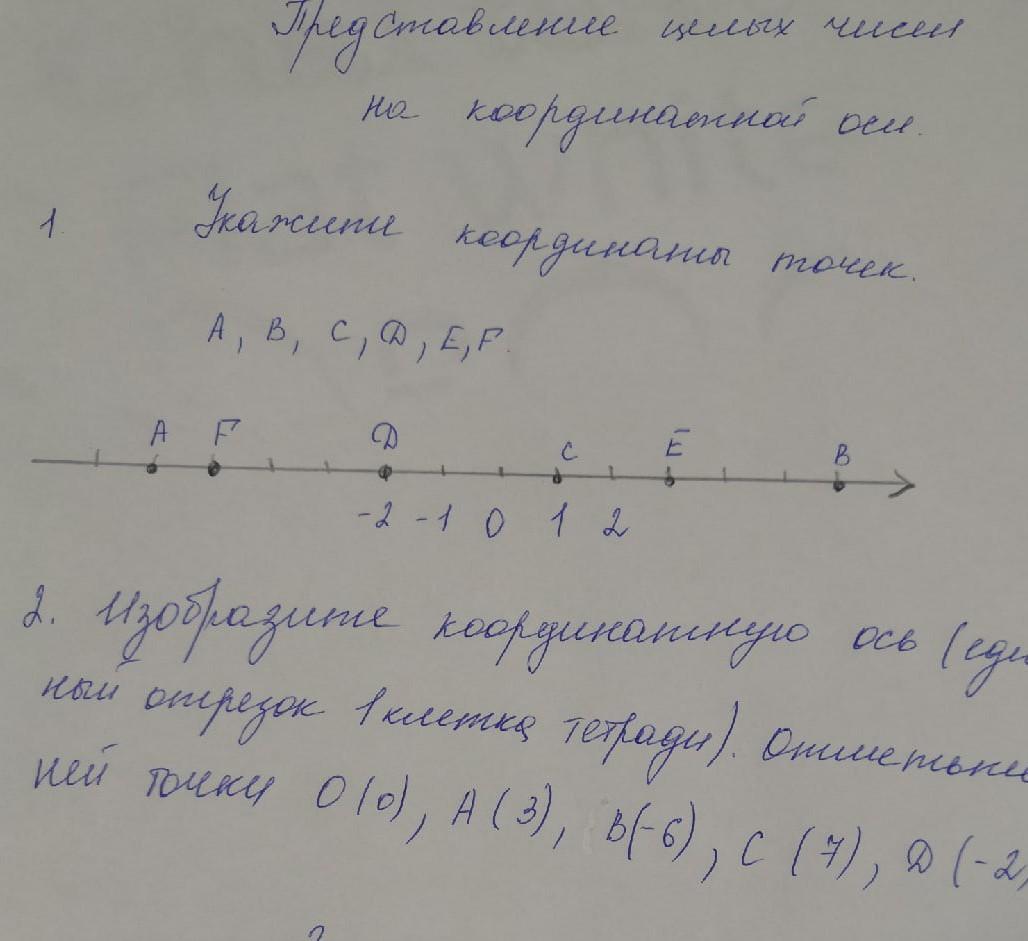 Представление целых чисел
на координатной оси.
1. Укажите координаты точек.
A, B, C, D, E, F.
A F D C E B
-2 -1 0 1 2
2. Изобразите координатную ось (еди
ный отрезок 1 клетка тетради). Отметьте
ней точки O(0), A(3), B(-6), C(7), D(-2)